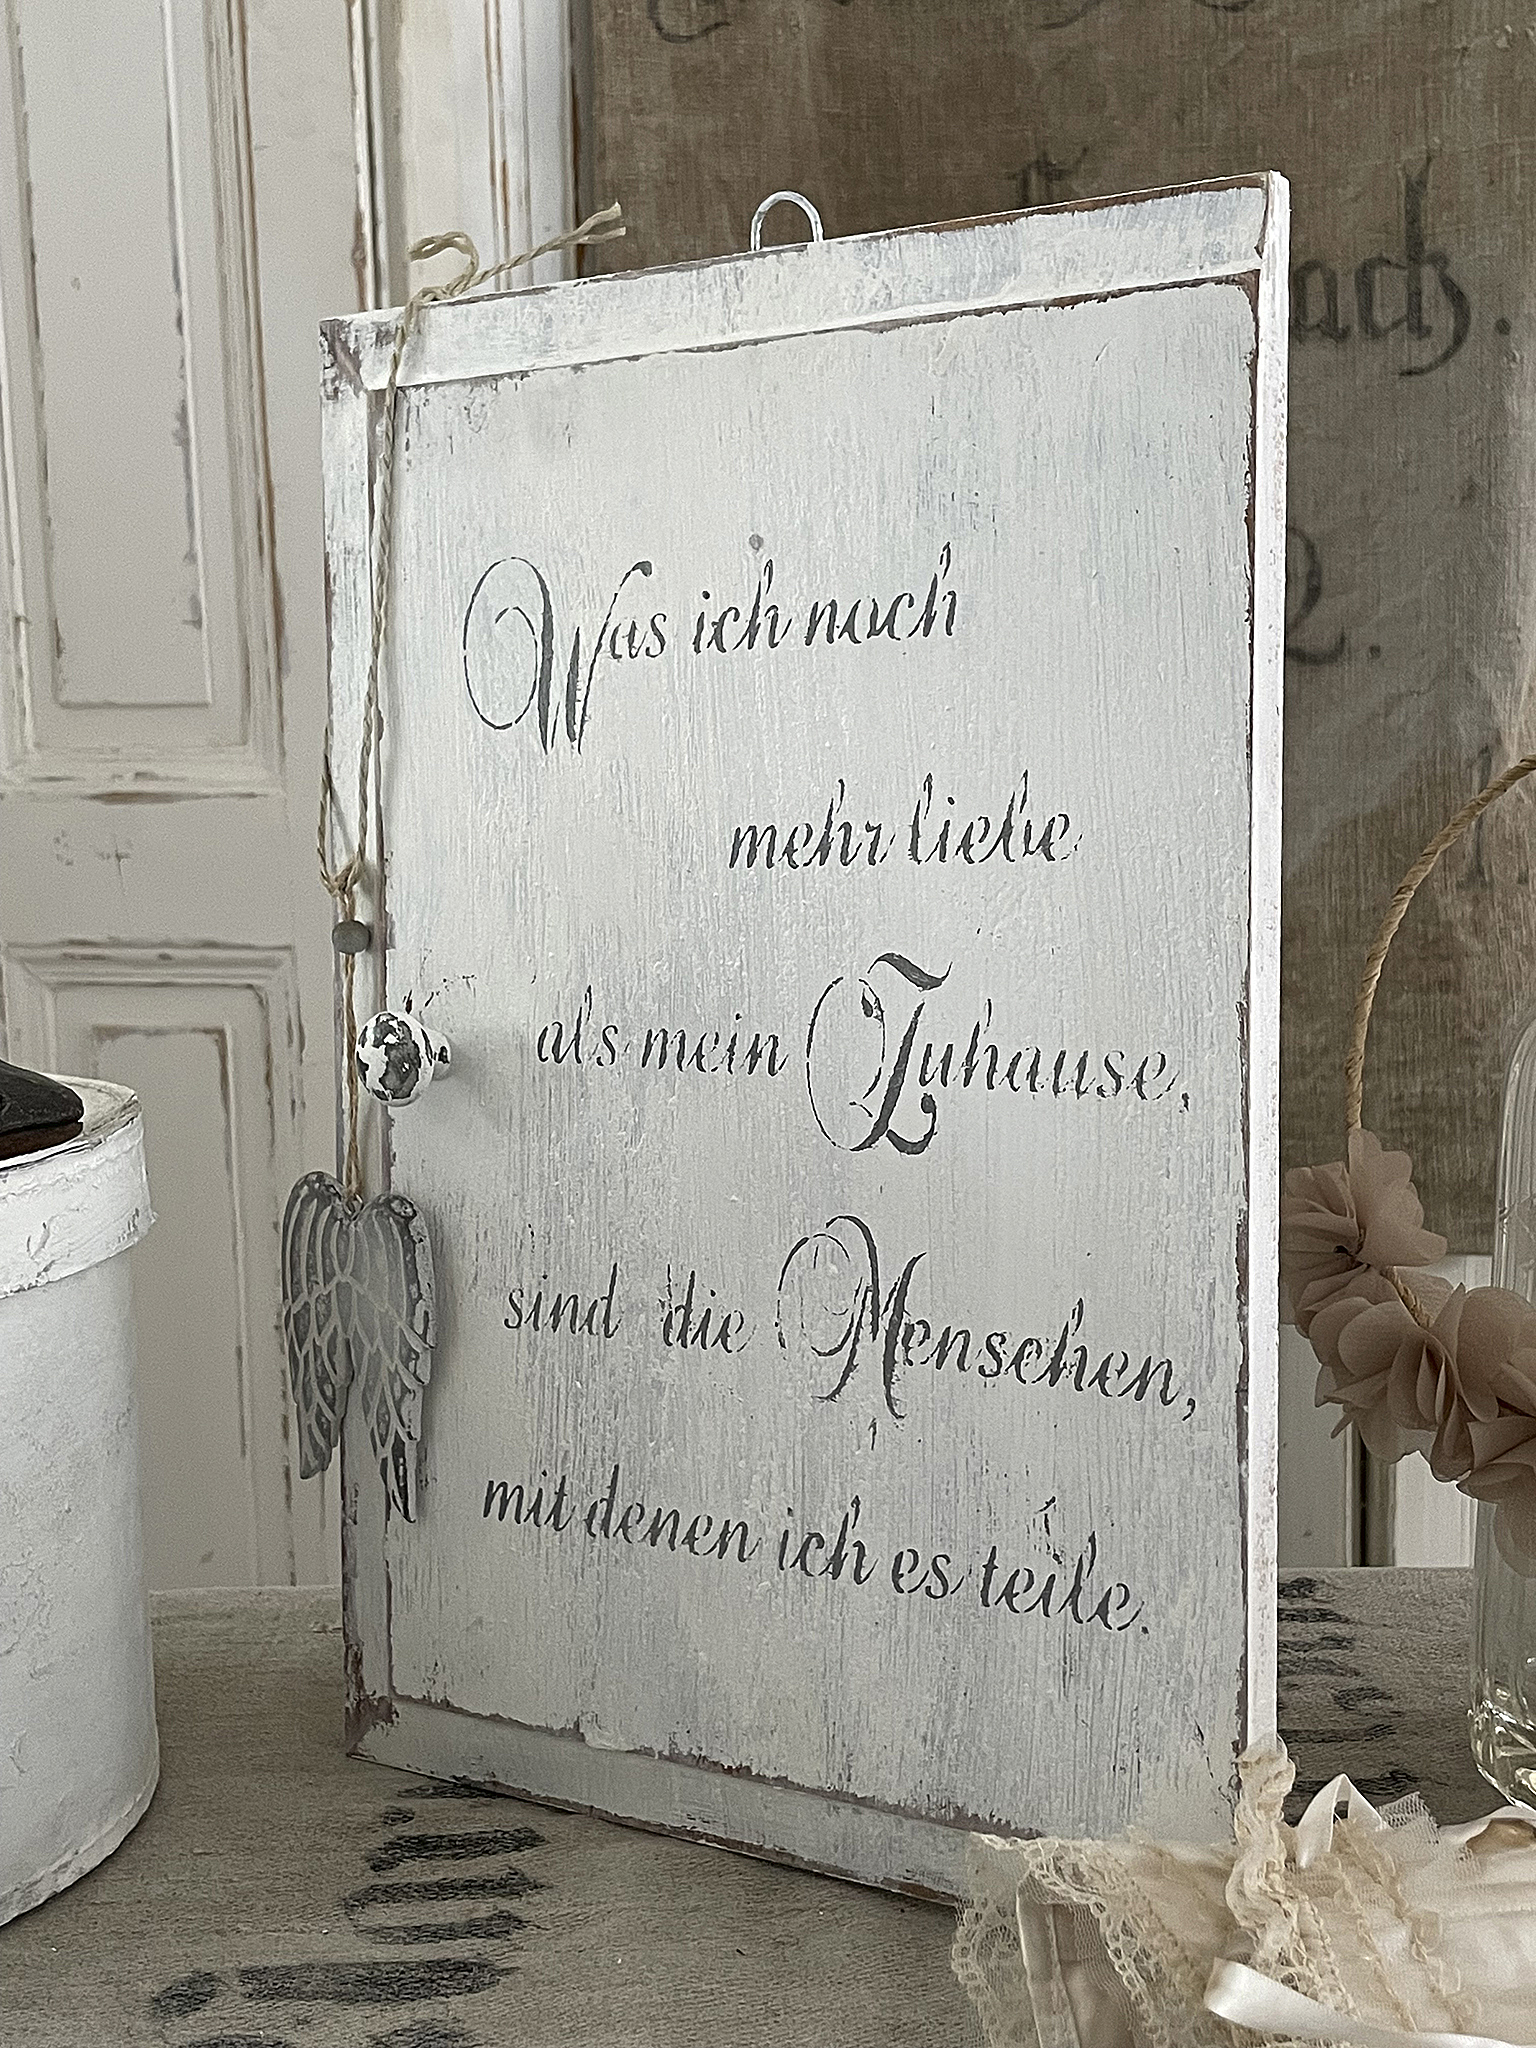 Was ich noch
mehr liebe
als mein Zuhause,
sind die Menschen,
mit denen ich es teile.